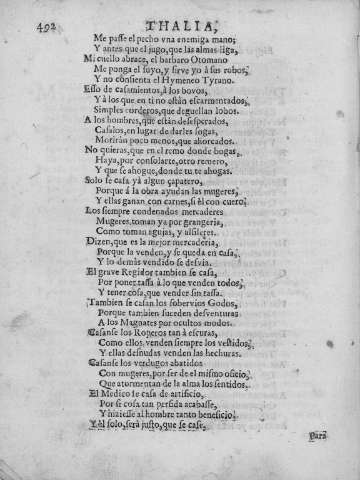 492 THALIA,
Me passe el pecho vna enemiga mano;
Y antes que el jugo, que las almas liga,
Mi cuello abrace, el barbaro Otomano
Me ponga el suyo, y sirve yo à sus robos,
Y no consienta el Hymeneo Tyrano.
Esso de casamientos, à los bovos,
Y à los que en ti no están escarmentados,
Simples corderos, que deguellan lobos.
A los hombres, que están desesperados,
Casalos, en lugar de darles sogas,
Morirán poco menos, que ahorcados.
No quieras, que en el remo donde bogas,
Haya, por consolarte, otro remero,
Y que se ahogue, donde tu te ahogas.
Solo se casa yà algun çapatero,
Porque à la obra ayudan las mugeres,
Y ellas ganan con carnes, si èl con cuero.
Los siempre condenados mercaderes
Mugeres toman ya por grangeria,
Como toman agujas, y alfileres.
Dizen, que es la mejor mercaderia,
Porque la venden, y se queda en casa,
Y lo demás vendido se desvia.
El grave Regidor tambien se casa,
Por poner tassa à lo que venden todos,
Y tener cosa, que vender sin tassa.
Tambien se casan los sobervios Godos,
Porque tambien suceden desventuras
A los Magnates por ocultos modos.
Casanse los Roperos tan à escuras,
Como ellos venden siempre los vestidos,
Y ellas desnudas venden las hechuras.
Casanse los verdugos abatidos
Con mugeres, por ser de el mismo oficio,
Que atormentan de la alma los sentidos.
El Medico se casa de artificio,
Por si cosa tan perfida acabasse,
Y hiziesse al hombre tanto beneficio.
Y èl solo, será justo, que se case,
Para